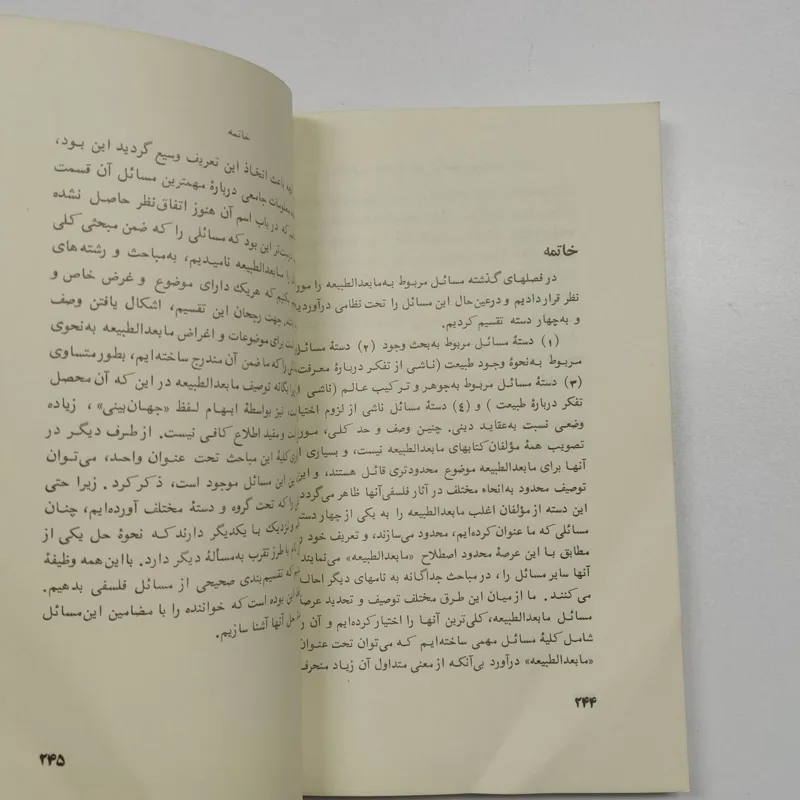 خاتمه
در فصلهای گذشته مسائل مربوط به‌مابعدالطبیعه را مورد
نظر قراردادیم و درعین‌حال این مسائل را تحت نظامی درآوردیم
و به‌چهار دسته تقسیم کردیم.
(۱) دستهٔ مسائل مربوط به‌بحث وجود (۲) دستهٔ مسائل
مربوط به‌نحوهٔ وجود طبیعت (ناشی از تفکر دربارهٔ معرفت
(۳) دستهٔ مسائل مربوط به‌جوهر و ترکیب عالم (ناشی از
تفکر دربارهٔ طبیعت) و (۴) دستهٔ مسائل ناشی از لزوم اختیار
وضعی نسبت به‌عقاید دینی. چنین وصف و حد کلی، مورد
تصویب همهٔ مؤلفان کتابهای مابعدالطبیعه نیست، و بسیاری از
آنها برای مابعدالطبیعه موضوع محدودتری قائل هستند، و این
توصیف محدود به‌انحاء مختلف در آثار فلسفی‌آنها ظاهر می‌گردد.
این دسته از مؤلفان اغلب مابعدالطبیعه را به یکی از چهار دسته
مسائلی که ما عنوان کرده‌ایم، محدود می‌سازند، و تعریف خود را
مطابق با این عرصهٔ محدود اصطلاح «مابعدالطبیعه» می‌نمایند.
آنها سایر مسائل را، در مباحث جداگانه به نامهای دیگر احاله
می‌کنند. ما از میان این طرق مختلف توصیف و تحدید عرصهٔ
مسائل مابعدالطبیعه، کلی‌ترین آنها را اختیار کرده‌ایم و آن را
شامل کلیهٔ مسائل مهمی ساخته‌ایم که می‌توان تحت عنوان
«مابعدالطبیعه» درآورد بی‌آنکه از معنی متداول آن زیاد منحرف
۲۴۴
خاتمه
باعث اتخاذ این تعریف وسیع گردید این بود،
معلومات جامعی دربارهٔ مهمترین مسائل آن قسمت
که در باب اسم آن هنوز اتفاق‌نظر حاصل نشده
این بود که مسائلی را که ضمن مبحثی کلی
مابعدالطبیعه نامیدیم، به‌مباحث و رشته‌های
که هریک دارای موضوع و غرض خاص و
جهت رجحان این تقسیم، اشکال یافتن وصف
برای موضوعات و اغراض مابعدالطبیعه به‌نحوی
را که ما ضمن آن مندرج ساخته‌ایم، بطور متساوی
توصیف مابعدالطبیعه در این که آن محصل
نیز بواسطهٔ ابهام لفظ «جهان‌بینی»، زیاده
و مفید اطلاع کافی نیست. از طرف دیگر در
کلیهٔ این مباحث تحت عنوان واحد، می‌توان
این مسائل موجود است، ذکر کرد. زیرا حتی
را که تحت گروه و دستهٔ مختلف آورده‌ایم، چنان
نزدیک با یکدیگر دارند که نحوهٔ حل یکی از
با طرز تقرب به‌مسألهٔ دیگر دارد. بااین‌همه وظیفهٔ
که تقسیم‌بندی صحیحی از مسائل فلسفی بدهیم.
این بوده است که خواننده را با مضامین این‌مسائل
حل آنها آشنا سازیم.
۲۴۵